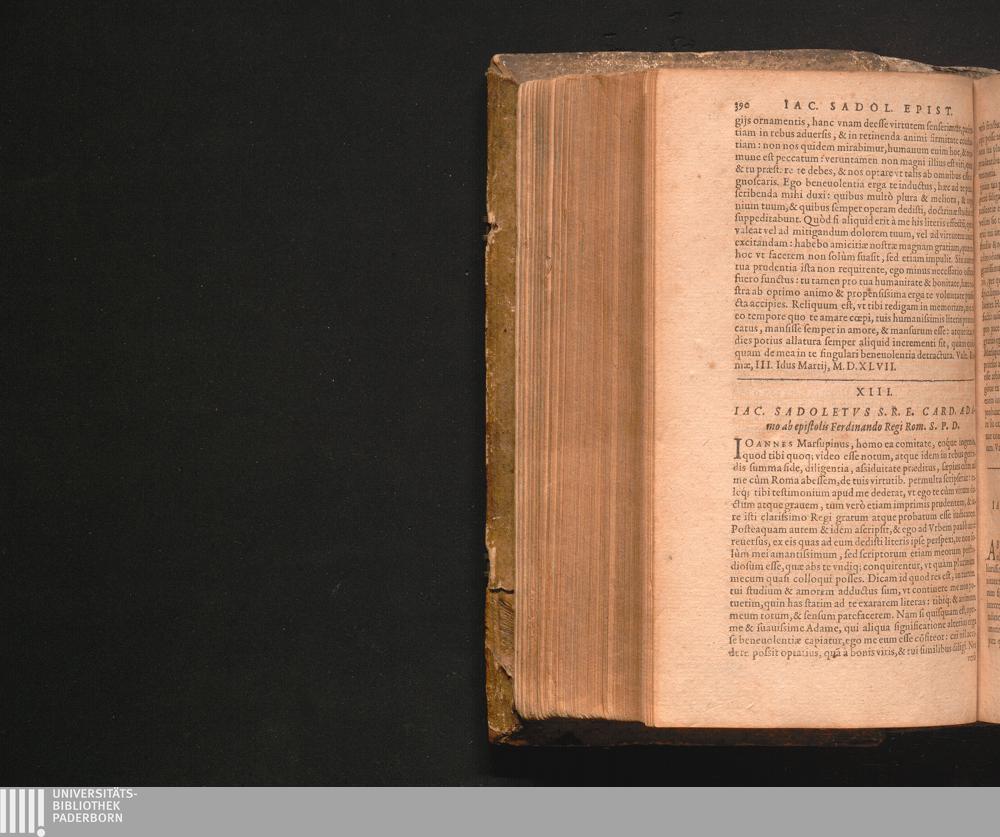 390 IAC. SADOL. EPIST.
gijs ornamentis, hanc vnam deesse virtutem senserimus,
tiam in rebus aduersis, & in retinenda animi firmitate
tiam: non nos quidem mirabimur, humanum enim hoc, &
mune est peccatum: veruntamen non magni illius est viri,
& tu præst. re te debes, & nos optare vt talis ab omnibus
gnoscaris. Ego beneuolentia erga te inductus, hæc ad te
scribenda mihi duxi: quibus multò plura & meliora, &
nium tuum, & quibus semper operam dedisti, doctrinæ
suppeditabunt. Quòd si aliquid erit à me his literis
valeat vel ad mitigandum dolorem tuum, vel ad virtutem
excitandam: habebo amicitiæ nostræ magnam gratiam,
hoc vt facerem non solùm suasit, sed etiam impulit. Sin
tua prudentia ista non requirente, ego minus necessario
fuero functus: tu tamen pro tua humanitate & bonitate,
stra ab optimo animo & propensissima erga te voluntate
cta accipies. Reliquum est, vt tibi redigam in memoriam,
eo tempore quo te amare cœpi, tuis humanissimis literis
catus, mansisse semper in amore, & mansurum esse: atque
dies potius allatura semper aliquid incrementi sit, quam
quam de mea in te singulari beneuolentia detractura. Vale.
mæ, III. Idus Martij, M.D.XLVII.
XIII.
IAC. SADOLETVS S.R.E. CARD. ADA-
mo ab epistolis Ferdinando Regi Rom. S. P. D.
IOANNES Marsupinus, homo ea comitate, eoq́ue ingenio,
quod tibi quoq; video esse notum, atque idem in rebus
dis summa fide, diligentia, assiduitate præditus, sæpius olim
me cùm Roma abessem, de tuis virtutib. permulta scripserat:
leq; tibi testimonium apud me dederat, vt ego te cùm virum
ctum atque grauem, tum verò etiam imprimis prudentem, &
re isti clarissimo Regi gratum atque probatum esse iudicarem.
Posteaquam autem & idem ascripsit, & ego ad Vrbem
reuersus, ex eis quas ad eum dedisti literis ipse perspexi, te non
lùm mei amantissimum, sed scriptorum etiam meorum
diosum esse, quæ abs te vndiq; conquirentur, vt quàm plurimum
mecum quasi colloqui posses. Dicam id quod res est,
tui studium & amorem adductus sum, vt continere me non
tuerim, quin has statim ad te exararem literas: tibiq; & animum
meum totum, & sensum patefacerem. Nam si quisquam est,
me & suauissime Adame, qui aliqua significatione alterius erga
se beneuolentiæ capiatur, ego me eum esse cōfiteor: cui nil
dere possit optatius, quā à bonis viris, & tui similibus diligi. Nec
verò
UNIVERSITÄTS-
BIBLIOTHEK
PADERBORN